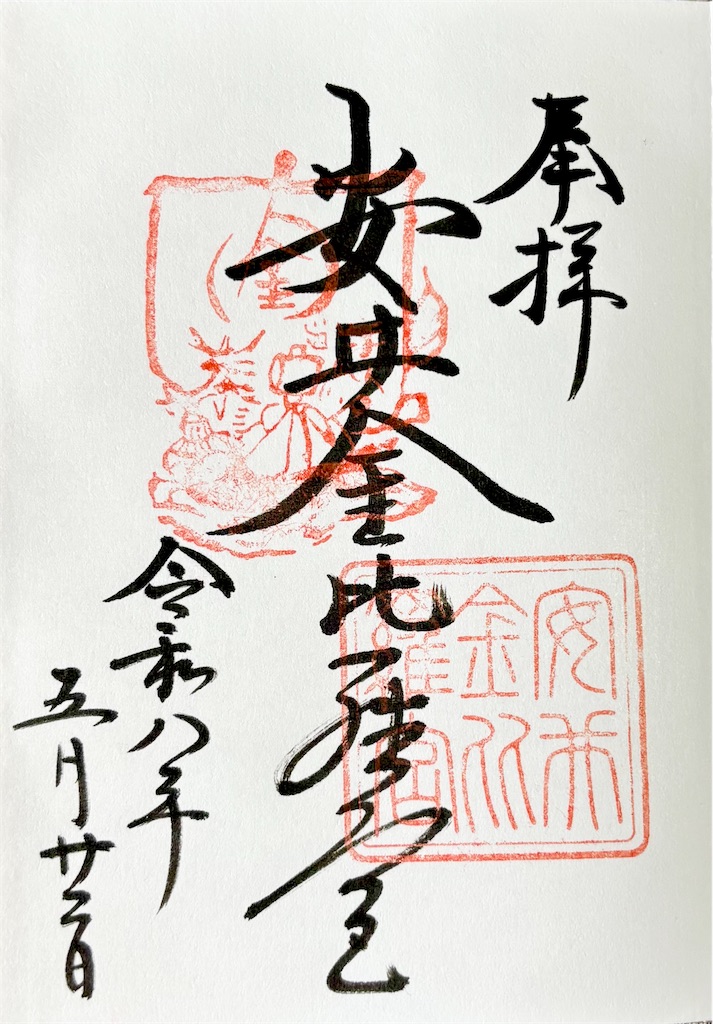 奉拝
安井金比羅宮
令和八年
五月廿二日
安井
金比
羅宮
金